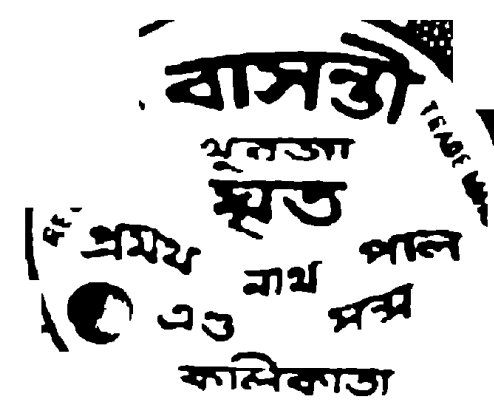 বাসন্তী
TRADE
খুরজা
ঘৃত
প্রমথ নাথ পাল
এণ্ড সন্স
কলিকাতা